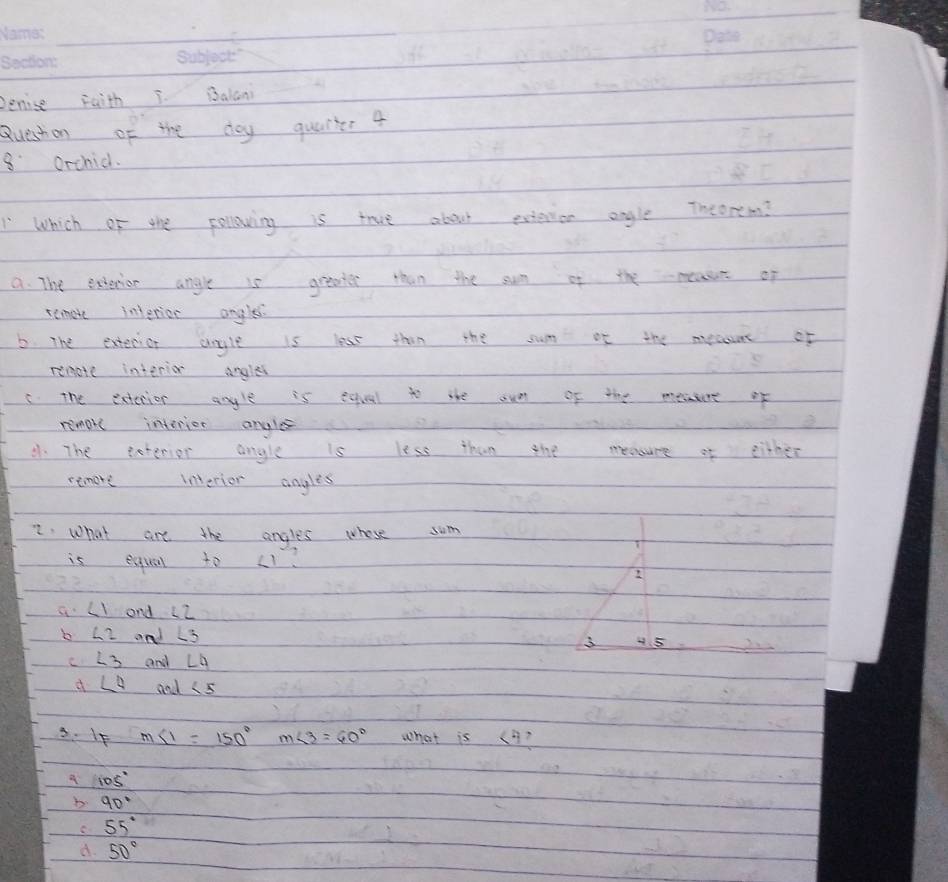 No.
Name:
Date
Section: Subject:
Denise Faith T. Balani
Question of the day quarter 4
8. Orchid.
1. Which of the following is true about exterior angle Theorem?
a. The exterior angle is greater than the sum of the measure of
remote interior angles.
b. The exterior angle is less than the sum of the measure of
remote interior angles
c. The exterior angle is equal to the sum of the measure of
remote interior angles
d. The exterior angle is less than the measure of either
remote interior angles
2. What are the angles whose sum
is equal to <1?
a. <1 and <2
b <2 and <3
c. <3 and <4
d <4 and <5
1
2
3 4 5
3. If m<1 = 150° m<3 = 60° what is <4?
a 105°
b. 90°
c. 55°
d. 50°